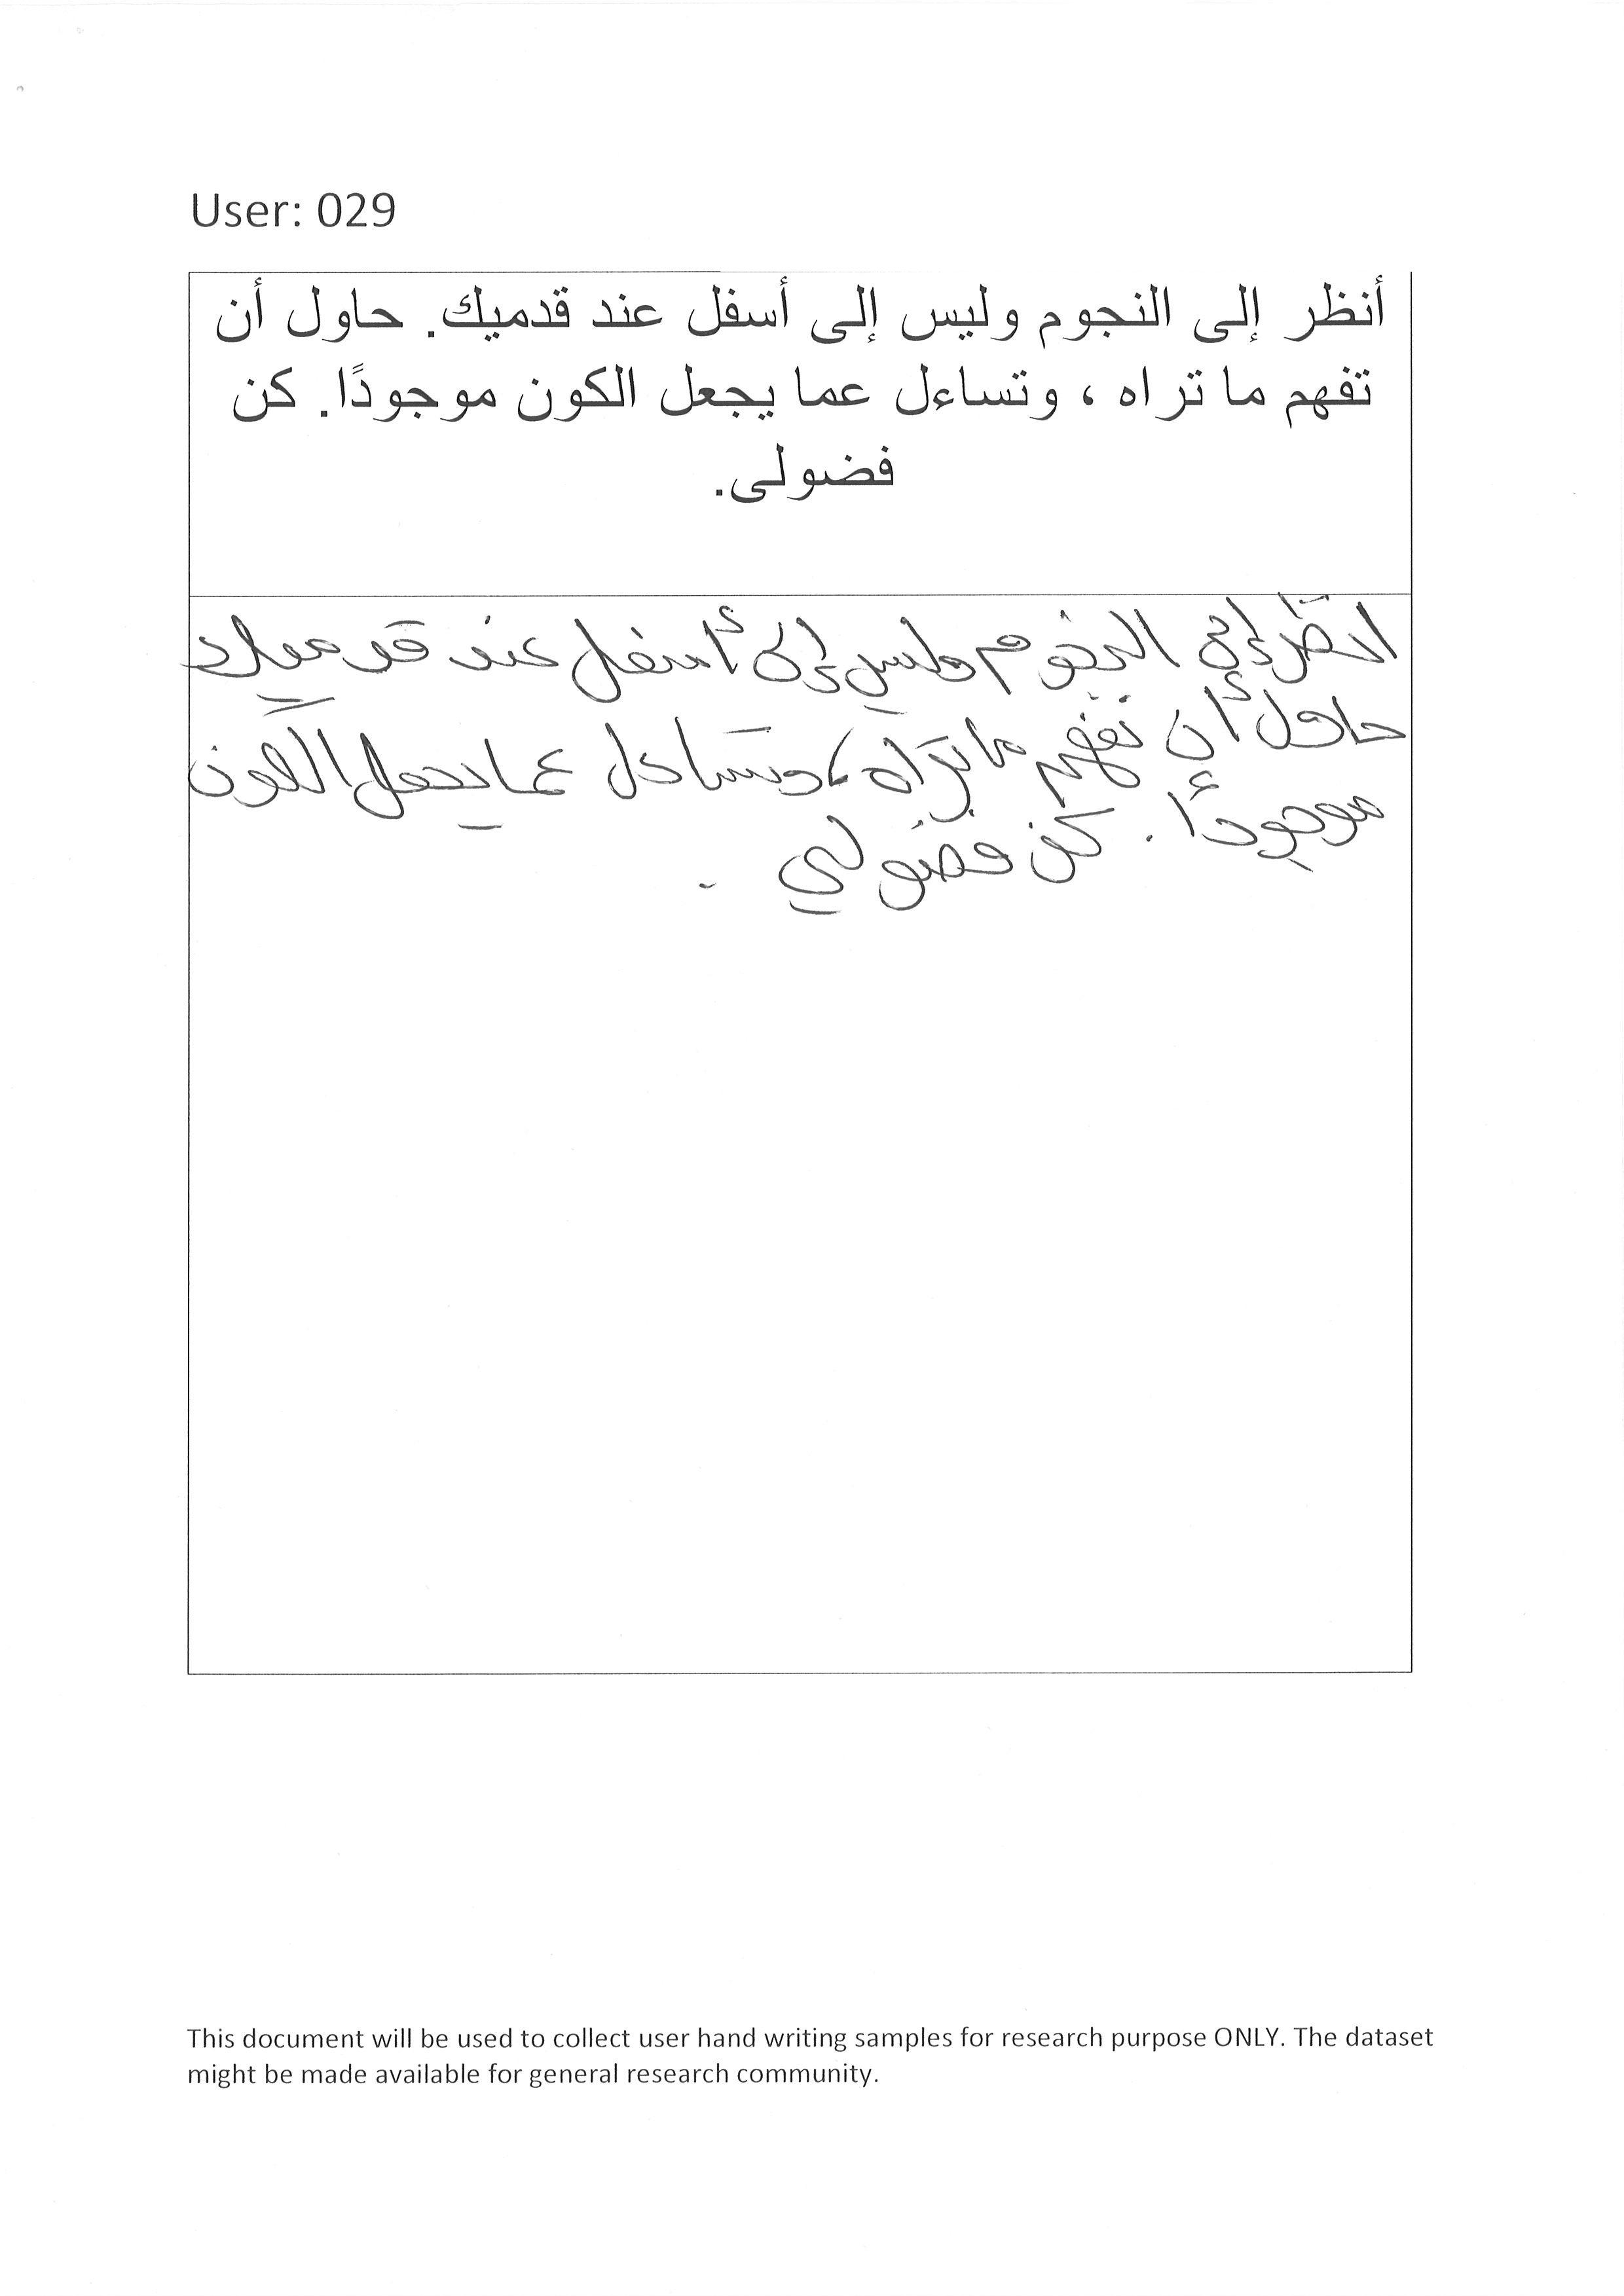 User: 029
أنظر إلى النجوم وليس إلى أسفل عند قدميك. حاول أن
تفهم ما تراه ، وتساءل عما يجعل الكون موجودًا. كن
فضولى.
انظر إلى النجوم وليس إلى أسفل عند قدميك
حاول أن تفهم ما تراه، وتساءل عما يجعل الكون
موجودًا. كن فضولي .
This document will be used to collect user hand writing samples for research purpose ONLY. The dataset
might be made available for general research community.